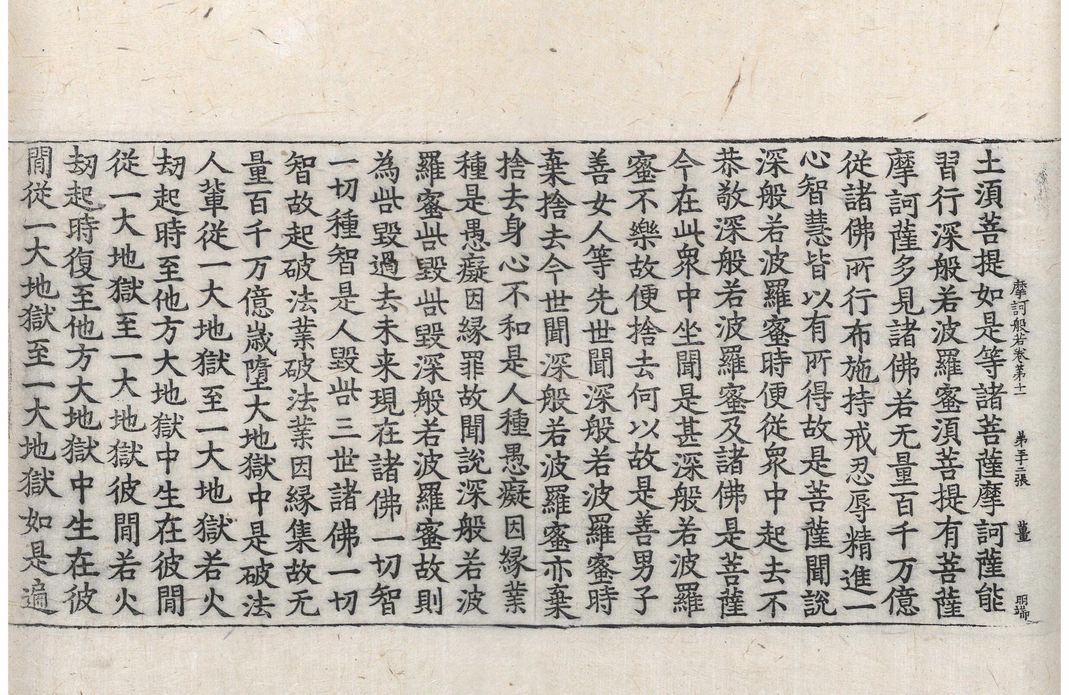 摩訶般若卷第十一 張 薑 明端
土湏菩提如是等諸菩薩摩訶薩能
習行深般若波羅蜜湏菩提有菩薩
摩訶薩多見諸佛若无量百千万億
從諸佛所行布施持戒忍辱精進一
心智慧皆以有所得故是菩薩聞說
深般若波羅蜜時便從衆中起去不
恭敬深般若波羅蜜及諸佛是菩薩
今在此衆中坐聞是甚深般若波羅
蜜不樂故便捨去何以故是善男子
善女人等先世聞深般若波羅蜜時
棄捨去今世聞深般若波羅蜜亦棄
捨去身心不和是人種愚癡因縁業
種是愚癡因縁罪故聞說深般若波
羅蜜呰毀呰毀深般若波羅蜜故則
為呰毀過去未来現在諸佛一切智
一切種智是人毀呰三世諸佛一切
智故起破法業破法業因縁集故无
量百千万億歲墮大地獄中是破法
人輩從一大地獄至一大地獄若火
劫起時至他方大地獄中生在彼閒
從一大地獄至一大地獄彼閒若火
劫起時復至他方大地獄中生在彼
閒從一大地獄至一大地獄如是遍